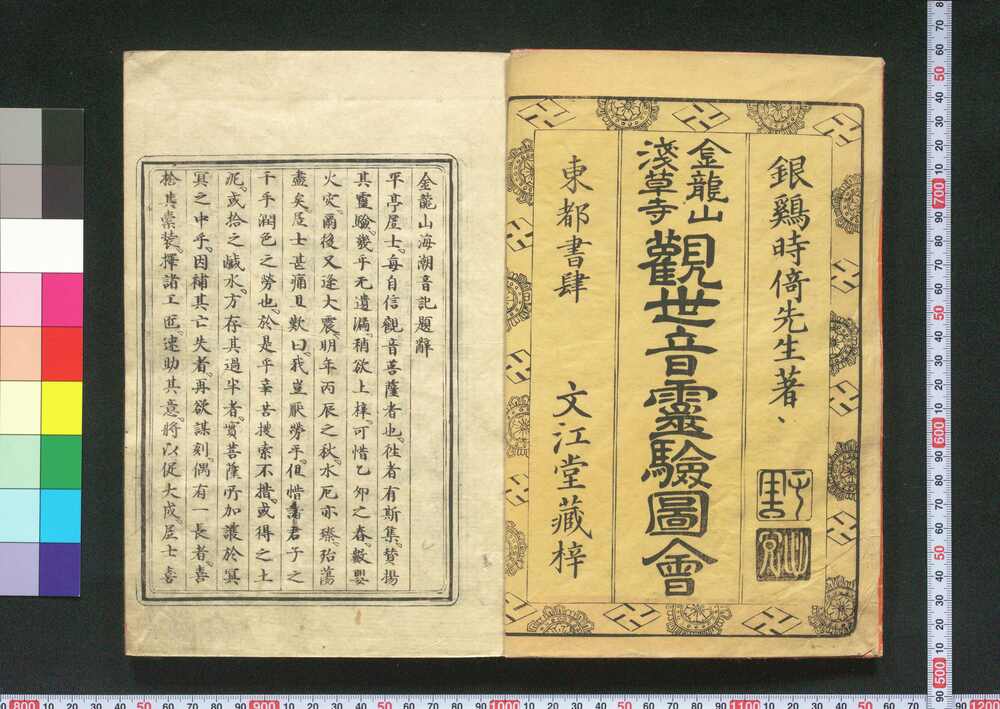 銀鷄時倚先生著、
金龍山
淺草寺
觀世音靈驗圖會
東都書肆
文江堂藏梓
金龍山海潮音記題辭
平亭居士每自信觀音菩薩者也往者有斯集贊揚
其靈驗幾乎无遺漏稍欲上梓可惜乙卯之春數嬰
火灾爾後又逢大震明年丙辰之秋水厄亦臻殆蕩
盡矣居士甚痛且歎曰我豈厭勞乎但惜諸君子之
干乎潤色之勞也於是乎辛苦搜索不措或得之土
泥或拾之鹹水方存其過半者實菩薩所加護於冥
冥之中乎因補其亡失者再欲謀刻偶有一長者喜
捨其橐裝擇諸工匠速助其意將以促大成居士喜